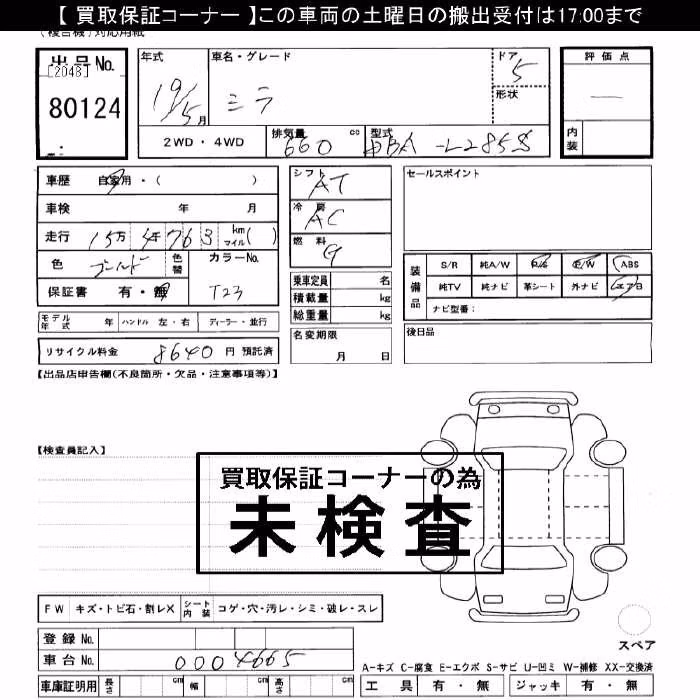 【 買取保証コーナー 】この車両の土曜日の搬出受付は17:00まで
(複合機)対応用紙
出品No. [2048] 80124
年式 19/5月
車名・グレード ミラ
ドア 5
形状
評価点 —
内装
2WD・4WD
排気量 660 cc
型式 DBA-L285S
車歴 自家用・( )
車検 年 月
走行 15万 4千 7 6 3 km マイル( )
色 ゴールド 色替 カラーNo. T23
保証書 有・無
シフト AT
冷房 AC
燃料 G
乗車定員 名
積載量 kg
総重量 kg
セールスポイント
装備品 S/R 純A/W P/S P/W ABS
純TV 純ナビ 革シート 外ナビ エアB
ナビ型番:
モデル年式 年 ハンドル 左・右 ディーラー・並行
名変期限 月 日
後日品
リサイクル料金 8640 円 預託済
【出品店申告欄(不良箇所・欠品・注意事項等)】
【検査員記入】
買取保証コーナーの為
未検査
FW キズ・トビ石・割レX シート内装 コゲ・穴・汚レ・シミ・破レ・スレ
登録No.
車台No. 0004665
スペア
A-キズ C-腐食 E-エクボ S-サビ U-凹ミ W-補修 XX-交換済
車庫証明用 長さ cm 幅 cm 高さ cm
工具 有・無 ジャッキ 有・無